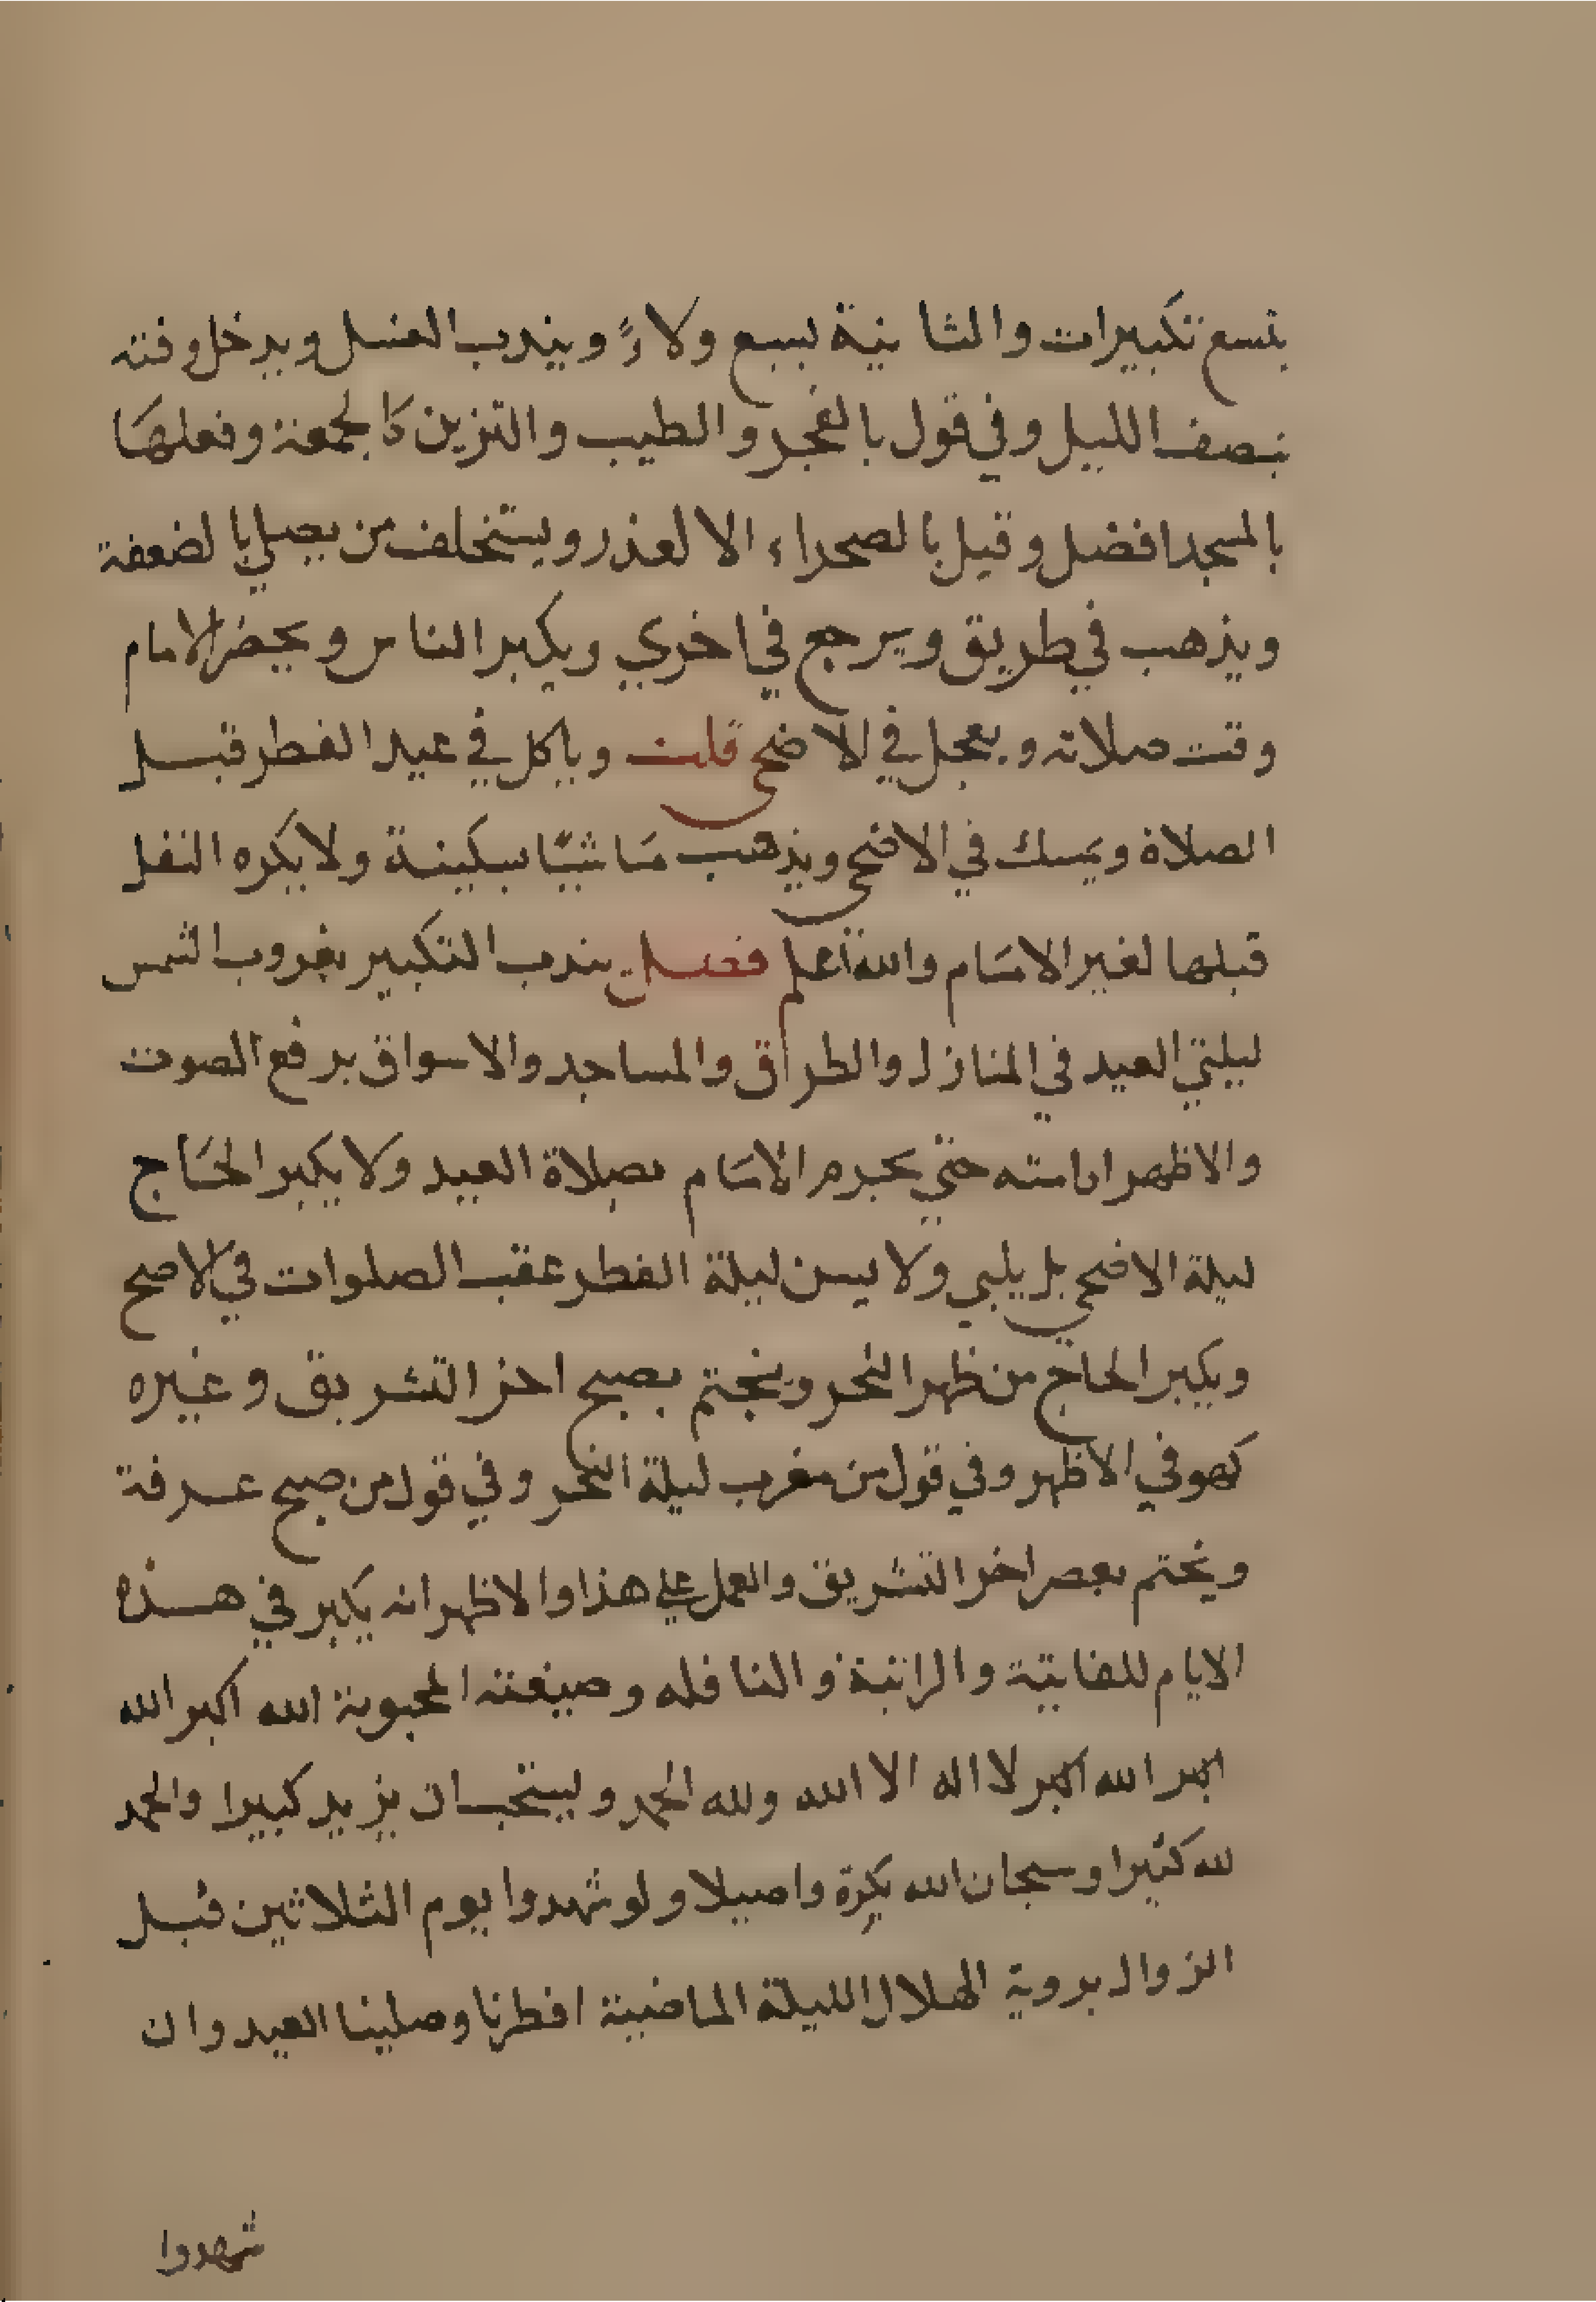 بتسع تكبيرات والثانية بسبع ولاءً ويندب الغسل ويدخل وقته
بنصف الليل وفي قول بالفجر والطيب والتزين كالجمعة وفعلها
بالمسجد افضل وقيل بالصحراء الا لعذر ويستخلف من يصلي بالضعفة
ويذهب في طريق ويرجع في اخري ويكبر الناس ويحضر الامام
وقت صلاته ويعجل في الاضحى قلت وياكل في عيد الفطر قبل
الصلاة ويمسك في الاضحى ويذهب ماشيًا بسكينة ولا يكره النفل
قبلها لغير الامام والله اعلم فصل يندب التكبير بغروب الشمس
ليلتي العيد في المنازل والطراق والمساجد والاسواق برفع الصوت
والاظهر ادامته حتي يحرم الامام بصلاة العيد ولا يكبر الحاج
ليلة الاضحى بل يلبي ولا يسن ليلة الفطر عقب الصلوات في الاصح
ويكبر الحاج من ظهر النحر ويختم بصبح اخر التشريق وغيره
كهو في الاظهر وفي قول من مغرب ليلة النحر وفي قول من صبح عرفة
ويختم بعصر اخر التشريق والعمل علي هذا والاظهر انه يكبر في هذه
الايام للفايتة والراتبة والنافله وصيغته المحبوبة الله اكبر الله
اكبر الله اكبر لا اله الا الله ولله الحمد ويستحب ان يزيد كبيرا والحمد
لله كثيرا وسبحان الله بكرة واصيلا ولو شهدوا يوم الثلاثين قبل
الزوال بروية الهلال الليلة الماضية افطرنا وصلينا العيد وان
شهدوا